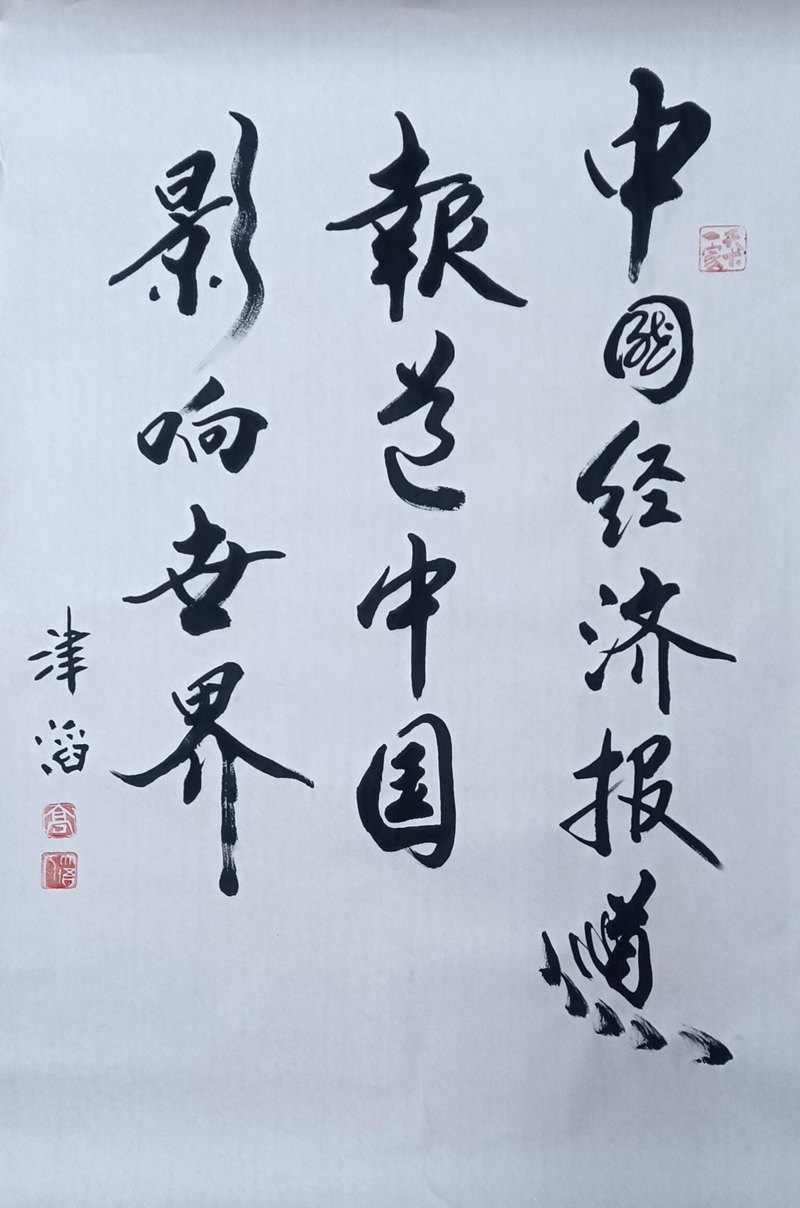 中國经济报
報道中国
影响世界
津滔